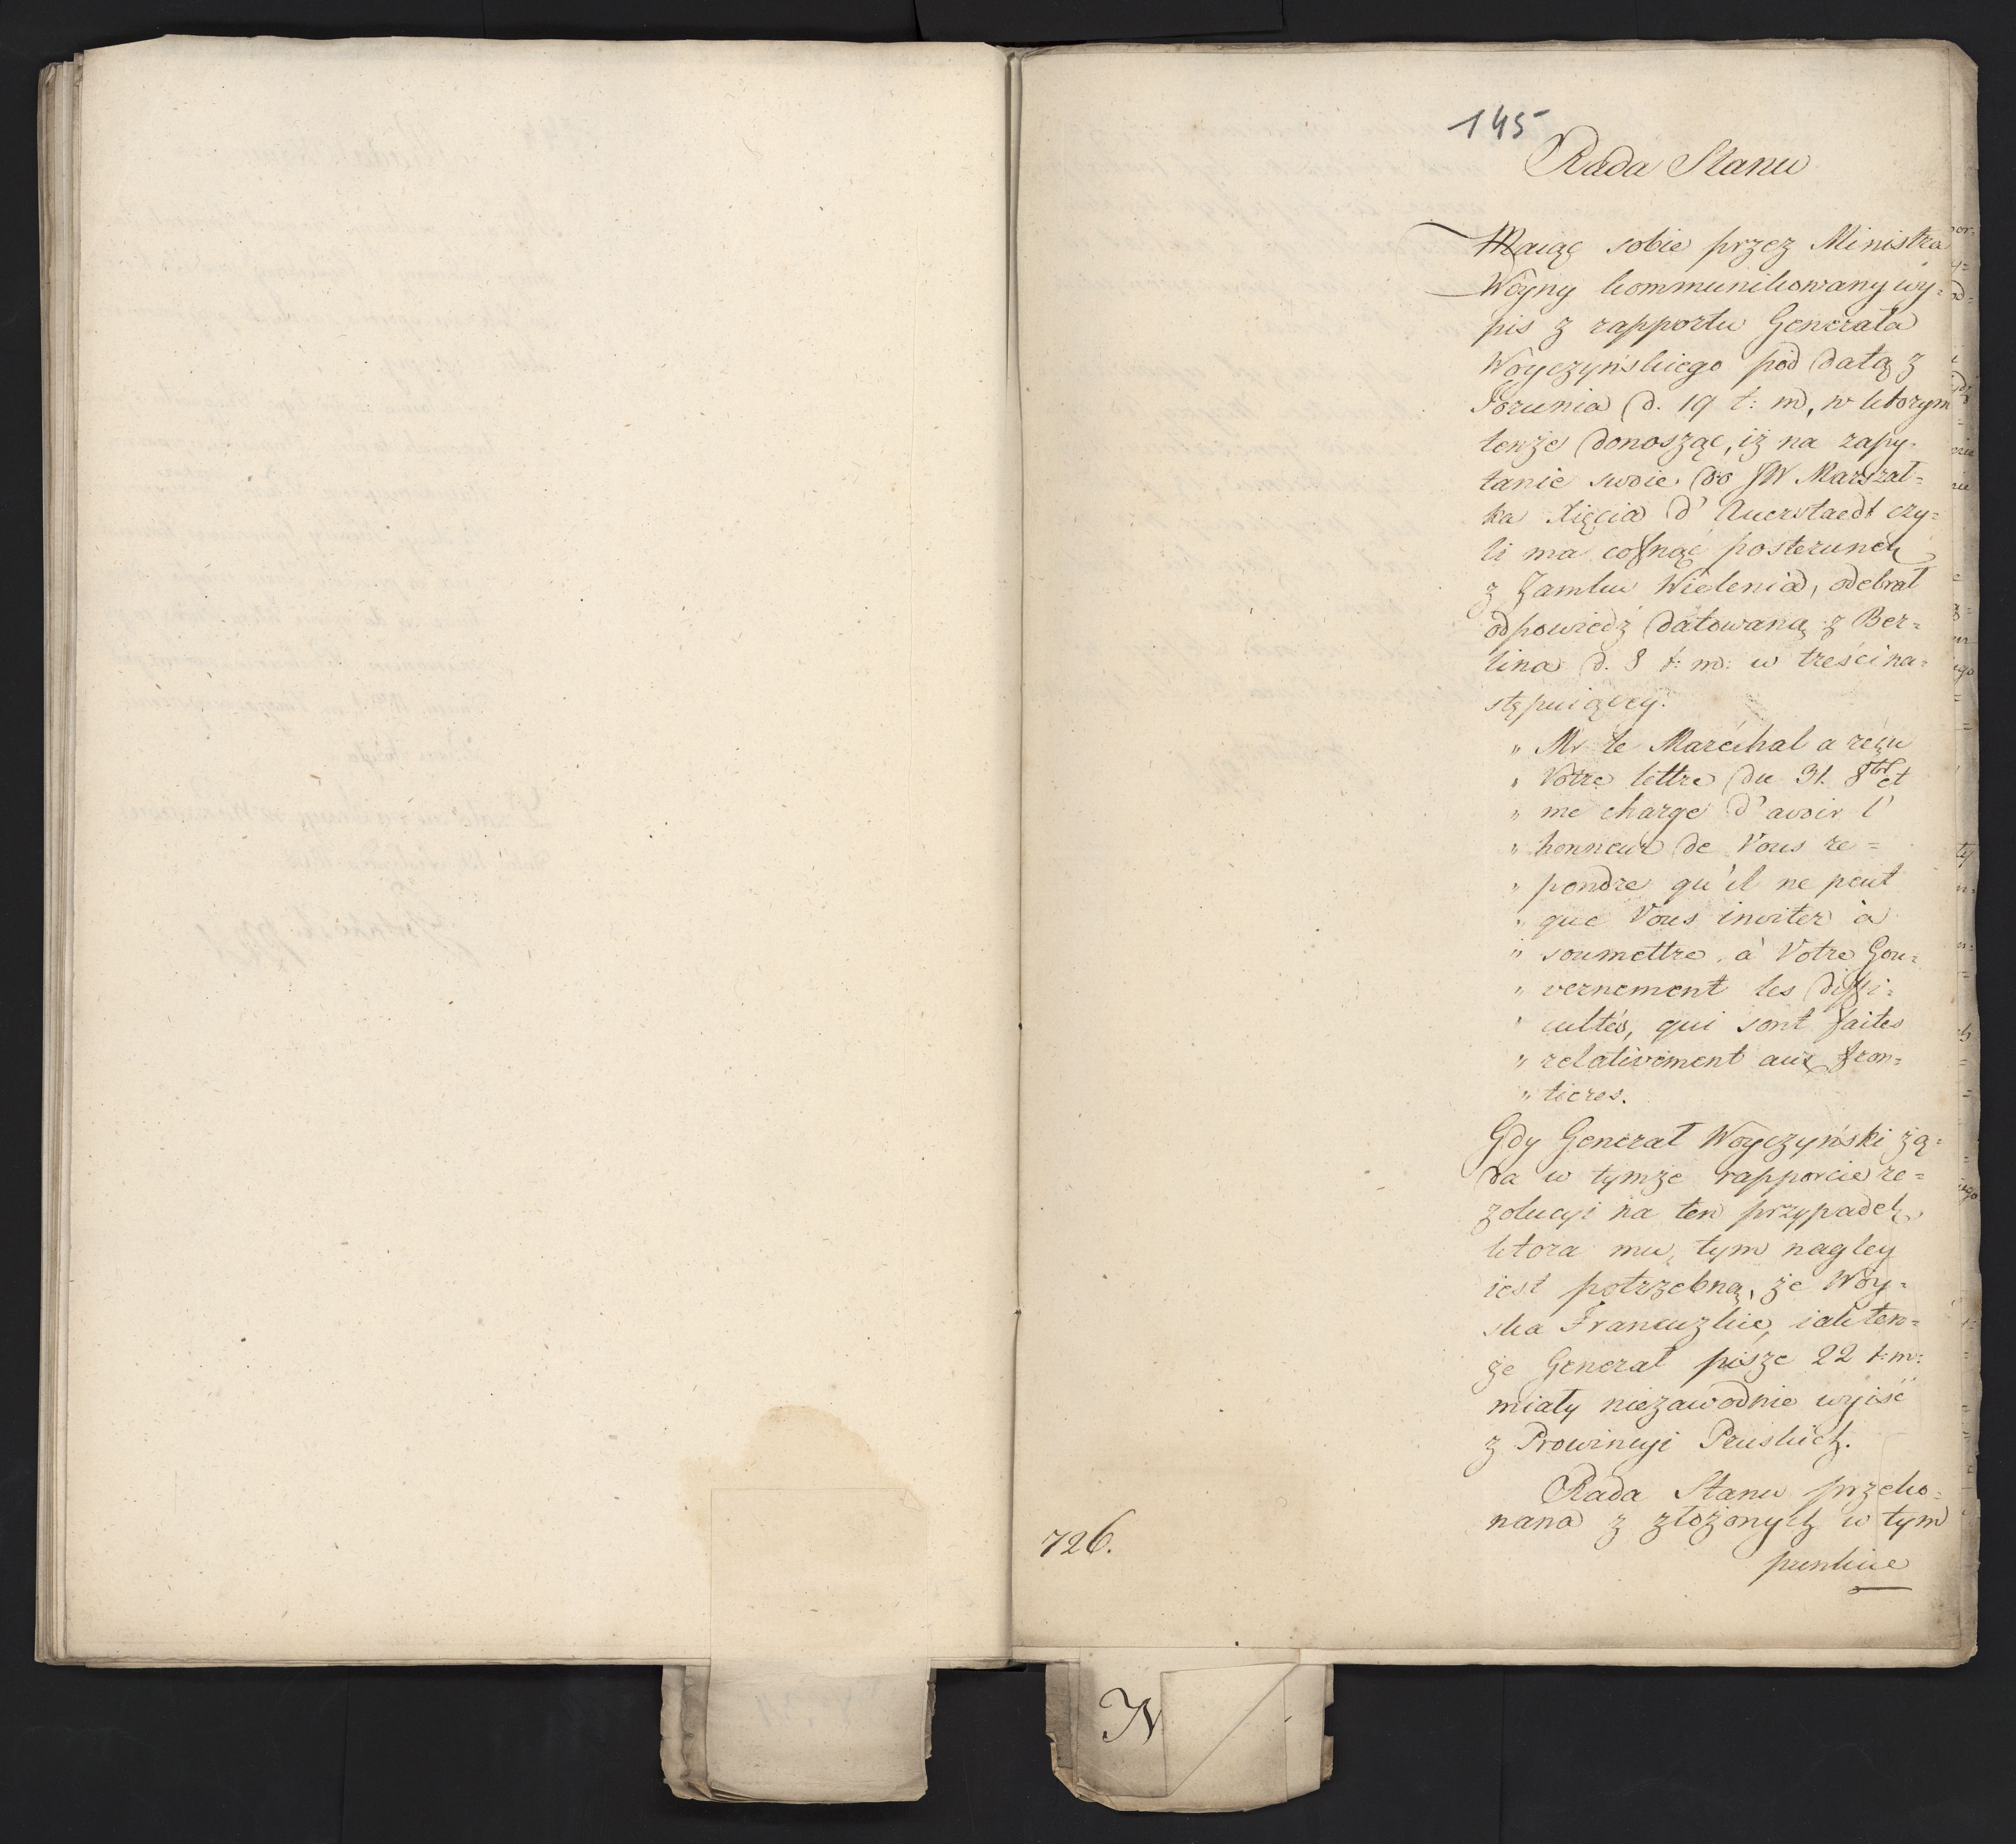 145
Rada Stanu
Maiąc sobie przez Ministra
Woyny kommunikowany wy=
pis z rapportu Generała
Woyczyńskiego pod datą z
Torunia d. 19 t: m, w ktorym
tenże donosząc, iż na zapy=
tanie swoie do JW Marszał=
ka Xięcia d'Auerstaedt czy=
li ma cofnąć posterunek
z Zamku Wielenia, odebrał
odpowiedź datowaną z Ber=
lina d. 8 t: m: w treści na=
stępuiącey:
" Mr le Maréchal a reçu
" Votre lettre du 31. 8bre et
" me charge d'avoir l'
" honneur de Vous re=
" pondre qu'il ne peut
" que Vous inviter à
" soumettre à Votre Gou=
" vernement les diffi=
" cultés, qui sont faites
" relativement aux fron=
" tieres.
Gdy Generał Woyczyński żą=
da w tymże rapporcie re=
zolucyi na ten przypadek,
ktora mu tym nagley
iest potrzebną, że Woy=
ska Francuzkie, iak ten=
że Generał pisze 22 t: m:
miały niezawodnie wyiść
z Prowincyi Pruskich.
Rada Stanu przeko=
nana z złożonych w tym
punkcie
726.
N